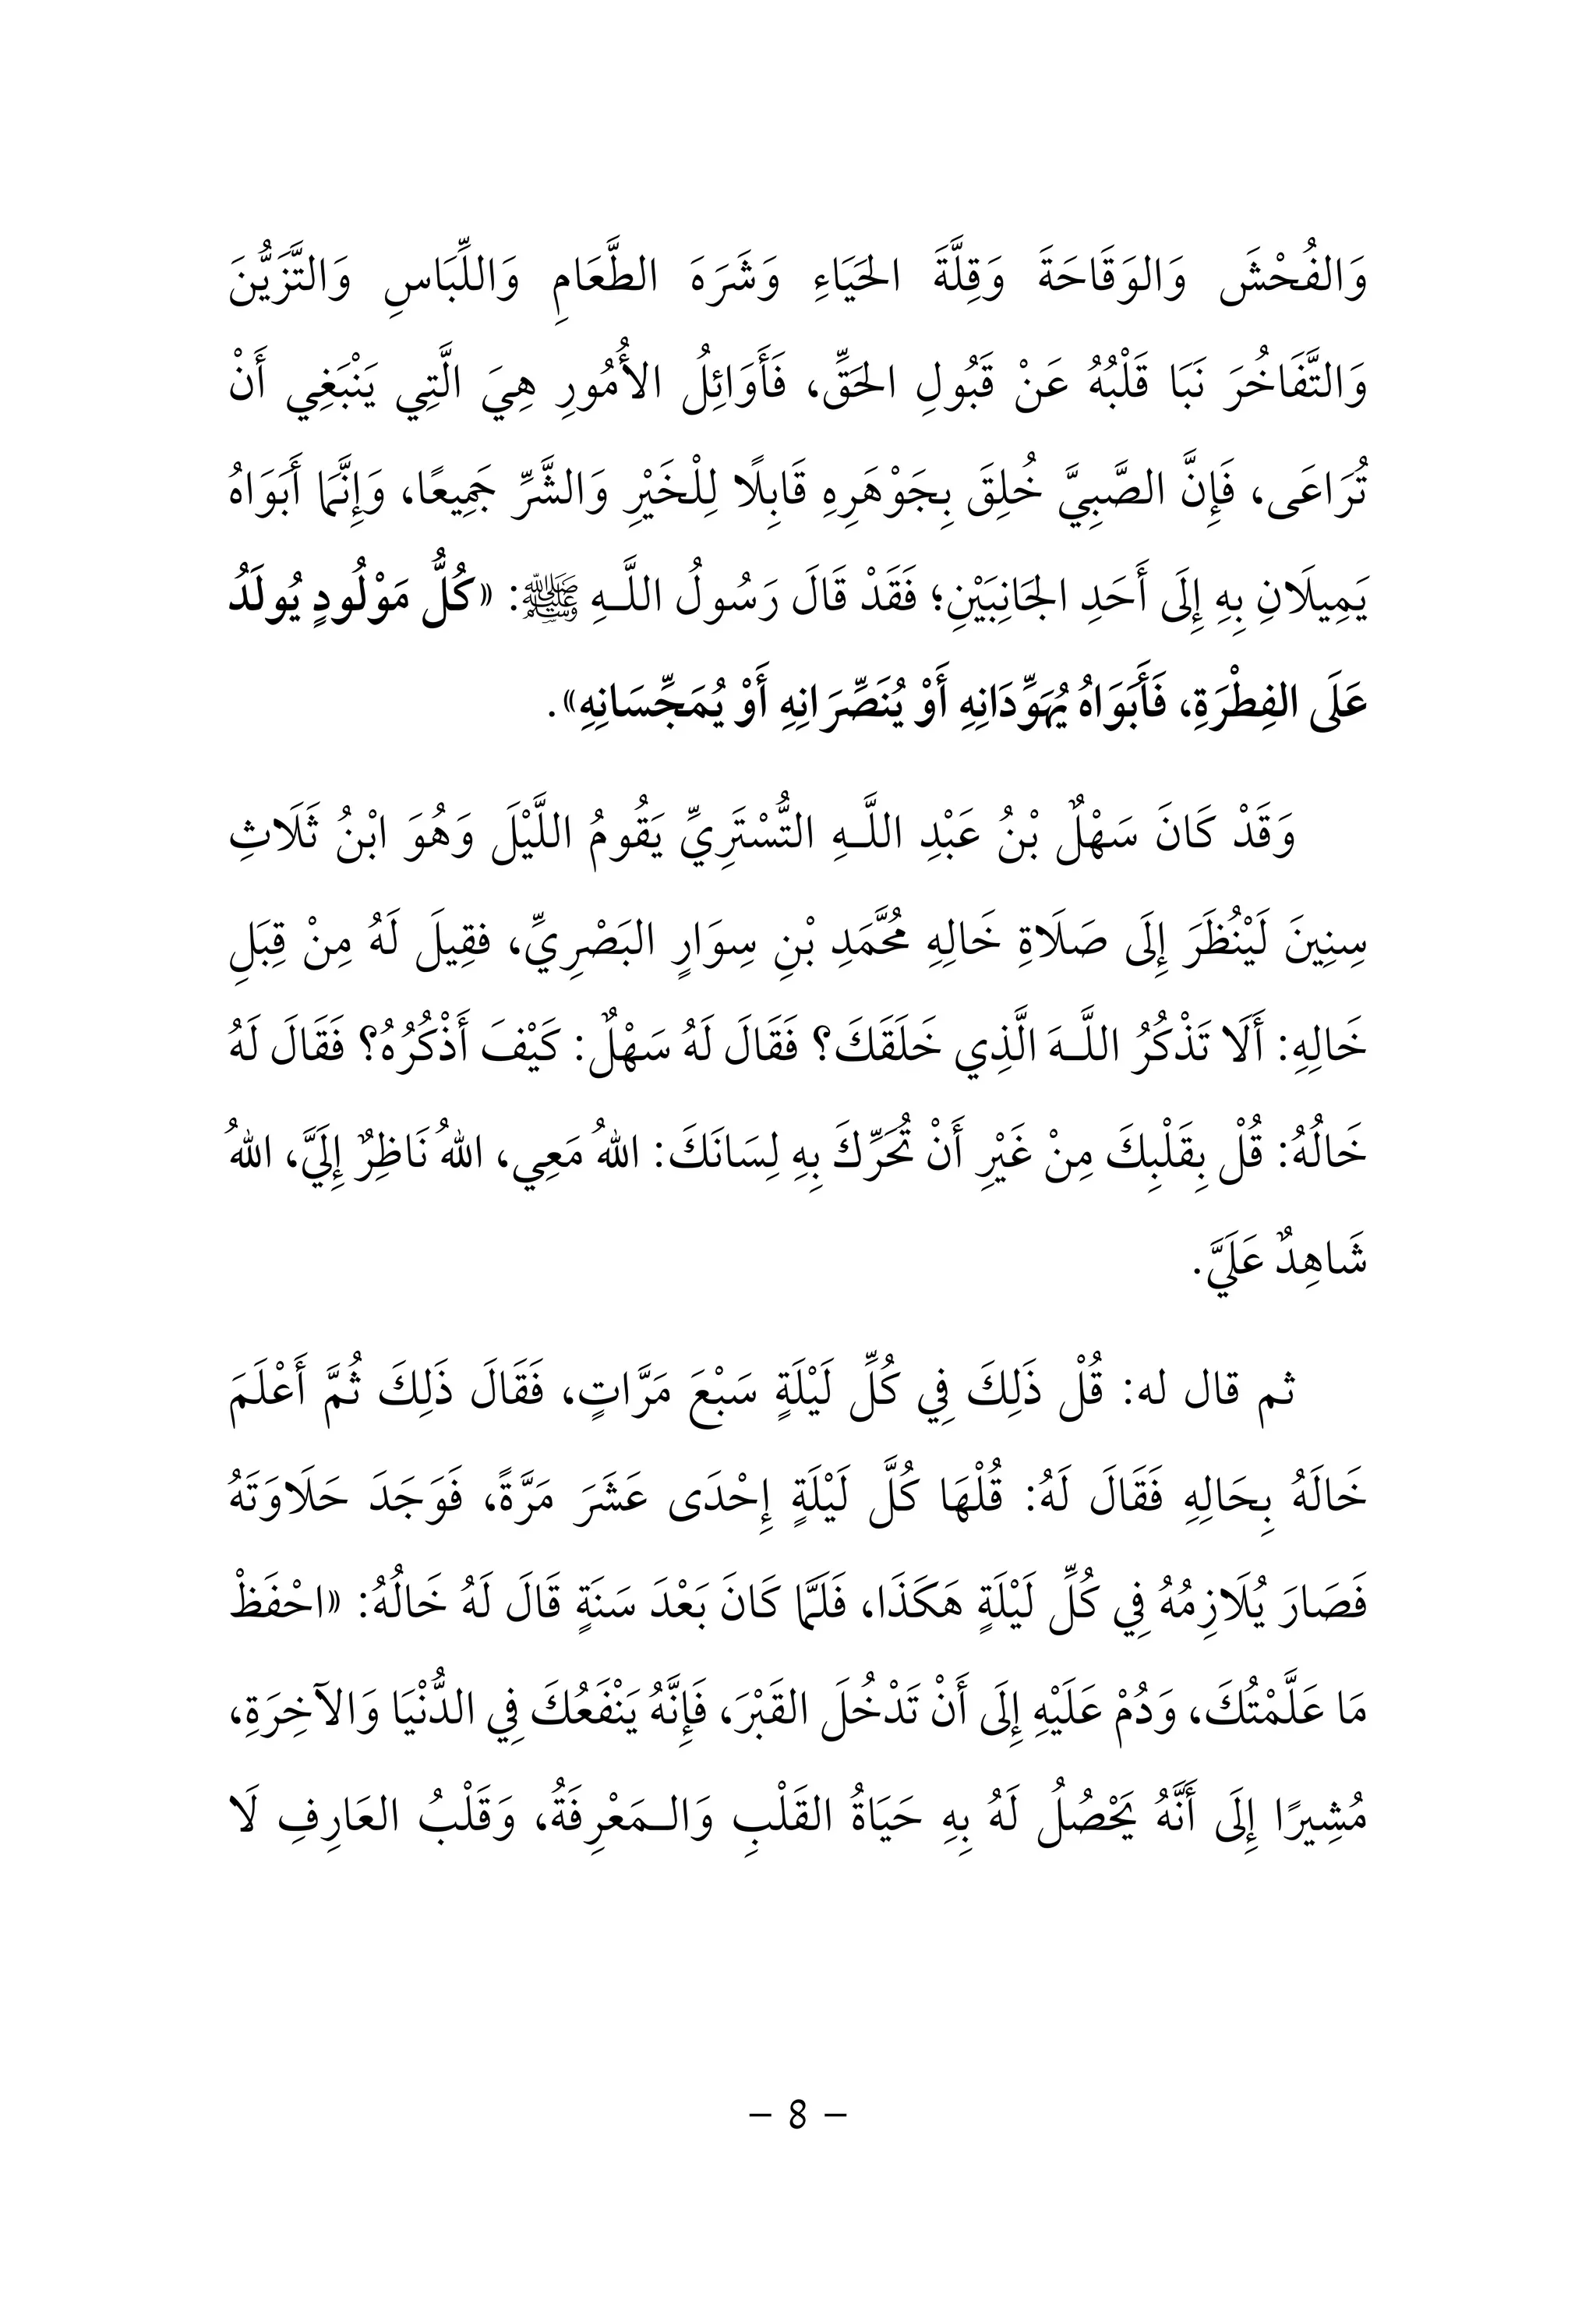 وَالفُحْشَ وَالوَقَاحَةَ وَقِلَّةَ الحَيَاءِ وَشَرَهَ الطَّعَامِ وَاللِّبَاسِ وَالتَّزَيُّنَ
وَالتَّفَاخُرَ نَبَا قَلْبُهُ عَنْ قَبُولِ الحَقِّ، فَأَوَائِلُ الأُمُورِ هِيَ الَّتِي يَنْبَغِي أَنْ
تُرَاعَى، فَإِنَّ الصَّبِيَّ خُلِقَ بِجَوْهَرِهِ قَابِلًا لِلْخَيْرِ وَالشَّرِّ جَمِيعًا، وَإِنَّمَا أَبَوَاهُ
يَمِيلَانِ بِهِ إِلَى أَحَدِ الجَانِبَيْنِ؛ فَقَدْ قَالَ رَسُولُ اللَّـهِ ﷺ: «كُلُّ مَوْلُودٍ يُولَدُ
عَلَى الفِطْرَةِ، فَأَبَوَاهُ يُهَوِّدَانِهِ أَوْ يُنَصِّرَانِهِ أَوْ يُمَجِّسَانِهِ».
وَقَدْ كَانَ سَهْلٌ بْنُ عَبْدِ اللَّـهِ التُّسْتَرِيِّ يَقُومُ اللَّيْلَ وَهُوَ ابْنُ ثَلَاثِ
سِنِينَ لَيْنْظَرَ إِلَى صَلَاةِ خَالِهِ مُحَمَّدِ بْنِ سِوَارٍ البَصْرِيِّ، فقِيلَ لَهُ مِنْ قِبَلِ
خَالِهِ: أَلَا تَذْكُرُ اللَّـهَ الَّذِي خَلَقَكَ؟ فَقَالَ لَهُ سَهْلٌ: كَيْفَ أَذْكُرُهُ؟ فَقَالَ لَهُ
خَالُهُ: قُلْ بِقَلْبِكَ مِنْ غَيْرِ أَنْ تُحَرِّكَ بِهِ لِسَانَكَ: اللهُ مَعِي، اللهُ نَاظِرٌ إِلَيَّ، اللهُ
شَاهِدٌ عَلَيَّ.
ثم قال له: قُلْ ذَلِكَ فِي كُلِّ لَيْلَةٍ سَبْعَ مَرَّاتٍ، فَقَالَ ذَلِكَ ثُمَّ أَعْلَمَ
خَالَهُ بِحَالِهِ فَقَالَ لَهُ: قُلْهَا كُلَّ لَيْلَةٍ إِحْدَى عَشَرَ مَرَّةً، فَوَجَدَ حَلَاوَتَهُ
فَصَارَ يُلَازِمُهُ فِي كُلِّ لَيْلَةٍ هَكَذَا، فَلَمَّا كَانَ بَعْدَ سَنَةٍ قَالَ لَهُ خَالُهُ: «احْفَظْ
مَا عَلَّمْتُكَ، وَدُمْ عَلَيْهِ إِلَى أَنْ تَدْخُلَ القَبْرَ، فَإِنَّهُ يَنْفَعُكَ فِي الدُّنْيَا وَالآخِرَةِ،
مُشِيرًا إِلَى أَنَّهُ يَحْصُلُ لَهُ بِهِ حَيَاةُ القَلْبِ وَالـمَعْرِفَةُ، وَقَلْبُ العَارِفِ لَا
– 8 –